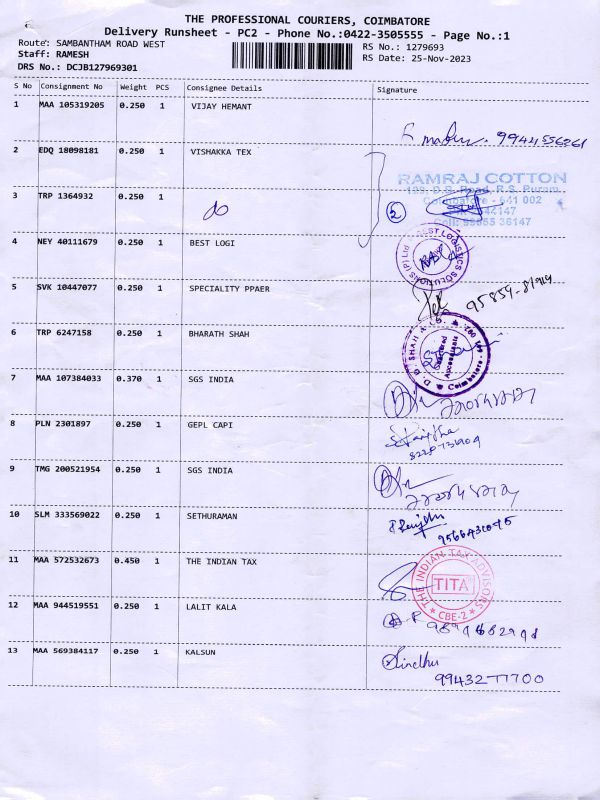 THE PROFESSIONAL COURIERS, COIMBATORE
Delivery Runsheet - PC2 - Phone No.:0422-3505555 - Page No.:1
Route: SAMBANTHAM ROAD WEST
RS No.: 1279693
Staff: RAMESH
RS Date: 25-Nov-2023
DRS No.: DCJB127969301
S No Consignment No Weight PCS Consignee Details Signature
1 MAA 105319205 0.250 1 VIJAY HEMANT
2 EDQ 18098181 0.250 1 VISHAKKA TEX
RAMRAJ COTTON
3 TRP 1364932 0.250 1 do 2
Coimbatore - 641 002
4 NEY 40111679 0.250 1 BEST LOGI
BEST LOGISTICS SOLUTIONS (P) Ltd
5 SVK 10447077 0.250 1 SPECIALITY PPAER
6 TRP 6247158 0.250 1 BHARATH SHAH
D. D. SHAH & CO. Chartered Accountants Coimbatore
7 MAA 107384033 0.370 1 SGS INDIA
8 PLN 2301897 0.250 1 GEPL CAPI
9 TMG 200521954 0.250 1 SGS INDIA
10 SLM 333569022 0.250 1 SETHURAMAN
11 MAA 572532673 0.450 1 THE INDIAN TAX
THE INDIAN TAX ADVISORS
TITA
CBE-2
12 MAA 944519551 0.250 1 LALIT KALA
13 MAA 569384117 0.250 1 KALSUN
Sindhu
99432 77700